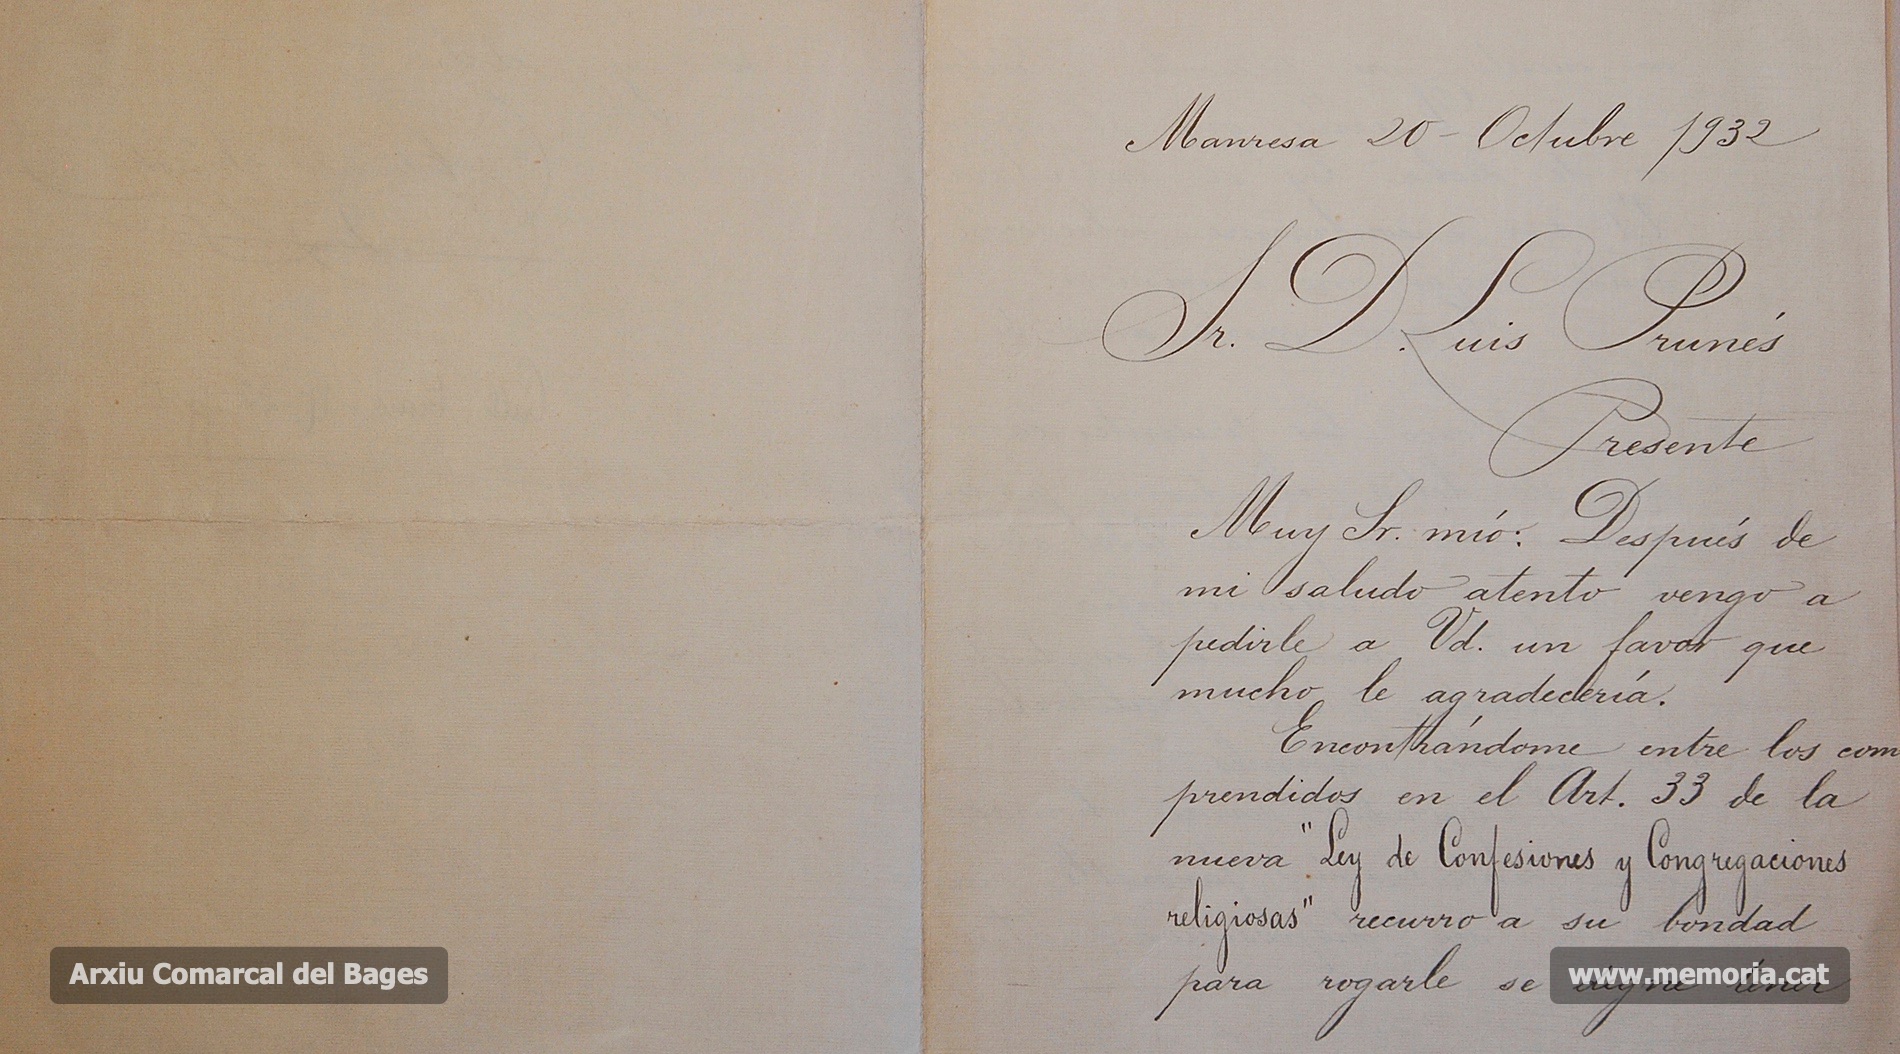 Manresa 20 - Octubre 1932
Sr. D. Luis Prunés
Presente
Muy Sr. mío: Después de
mi saludo atento vengo a
pedirle a Vd. un favor que
mucho le agradecería.
Encontrándome entre los com
prendidos en el Art. 33 de la
nueva "Ley de Confesiones y Congregaciones
religiosas" recurro a su bondad
para rogarle se digne
Arxiu Comarcal del Bages
www.memoria.cat